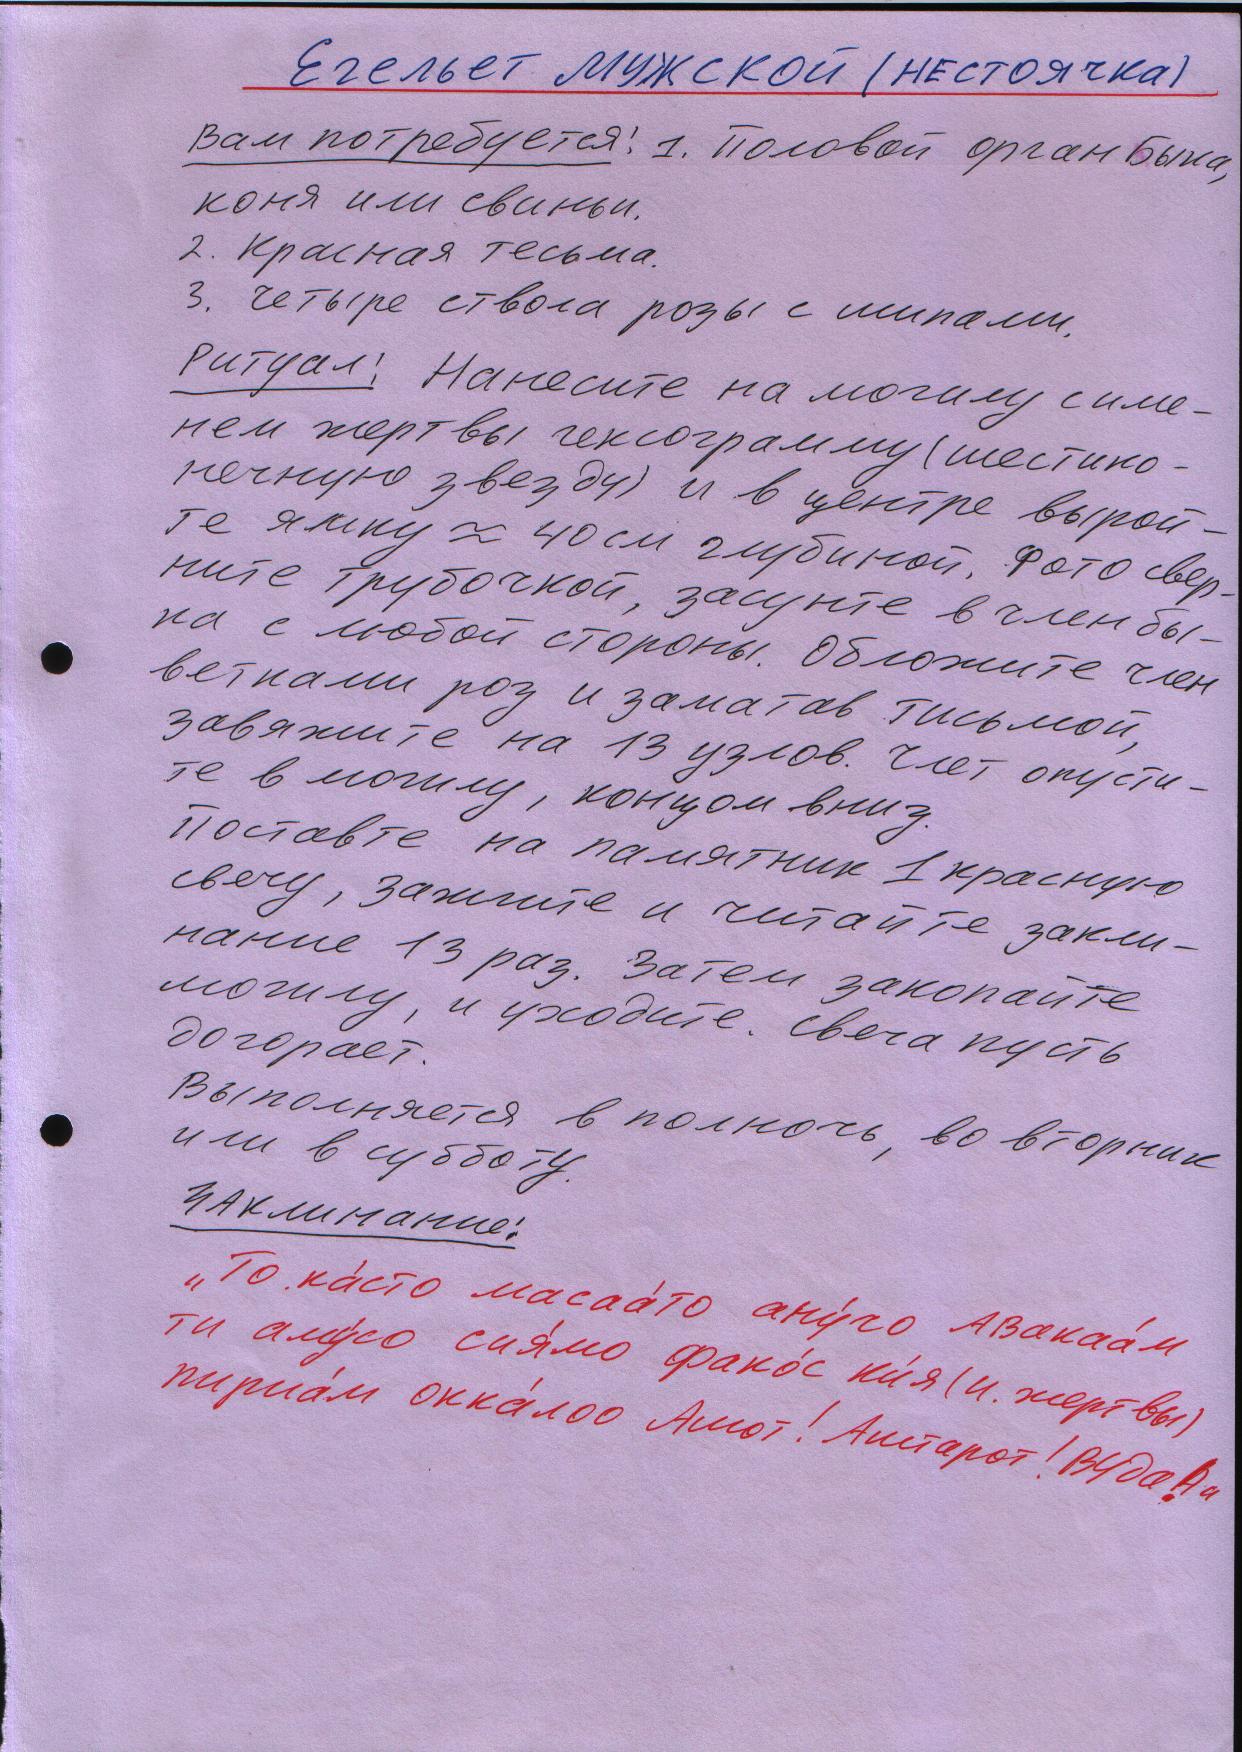 Егельет мужской (нестоячка)
Вам потребуется: 1. Половой орган Быка,
коня или свиньи.
2. Красная тесьма.
3. Четыре ствола розы с шипами.
Ритуал: Нанесите на могилу с име-
нем жертвы гексограмму (шестико-
нечную звезду) и в центре вырой-
те ямку ≈ 40 см глубиной. Фото свер-
ните трубочкой, засунте в член бы-
ка с любой стороны. Обложите член
ветками роз и заматав тисьмой,
завяжите на 13 узлов. Члет опусти-
те в могилу, концом вниз.
Поставте на памятник 1 красную
свечу, зажгите и читайте закли-
нание 13 раз. Затем закопайте
могилу, и уходите. Свеча пусть
догорает.
Выполняется в полночь, во вторник
или в субботу.
Заклинание:
„То ка́сто масаа́то ану́го Авакаа́м
ти алу́со сия́мо фако́с ки́я (и. жертвы)
пириа́м окка́лоо Амот! Аштарот!